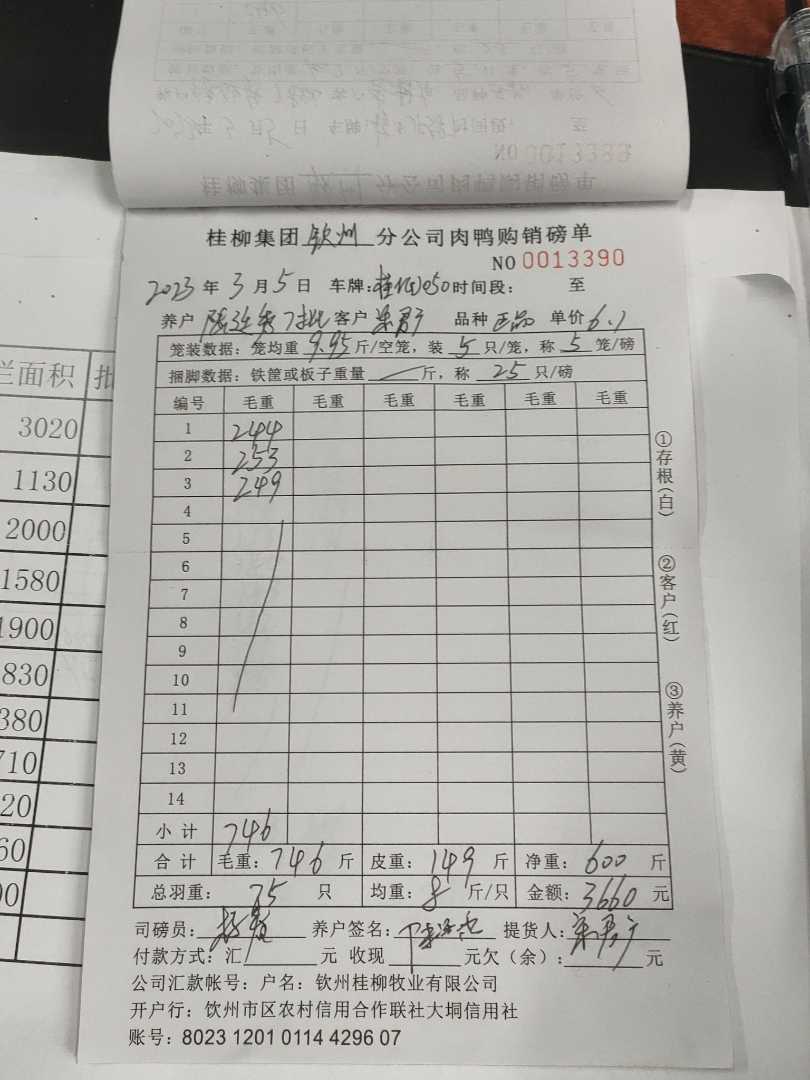 NO 0013389
桂柳集团 钦州 分公司肉鸭购销磅单
NO 0013390
2023 年 3 月 5 日 车牌: 时间段: 至
养户 客户 品种 正品 单价 6.1
笼装数据: 笼均重 9.95 斤/空笼, 装 5 只/笼, 称 5 笼/磅
捆脚数据: 铁筐或板子重量 斤, 称 25 只/磅
编号 毛重 毛重 毛重 毛重 毛重 毛重
1 244
2 253
3 249
4
5
6
7
8
9
10
11
12
13
14
小计 746
合计 毛重: 746 斤 皮重: 149 斤 净重: 600 斤
总羽重: 75 只 均重: 8 斤/只 金额: 3660 元
司磅员: 养户签名: 提货人:
付款方式: 汇 元 收现 元欠(余): 元
公司汇款帐号: 户名: 钦州桂柳牧业有限公司
开户行: 钦州市区农村信用合作联社大垌信用社
账号: 8023 1201 0114 4296 07
①存根(白)
②客户(红)
③养户(黄)
栏面积 批
3020
1130
2000
1580
1900
830
380
710
20
60
00